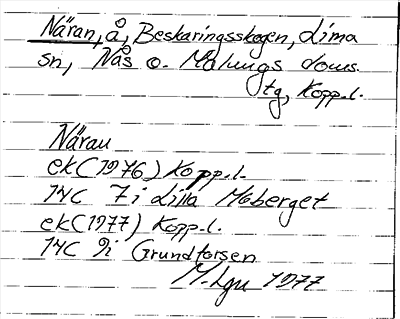 Näran, å, Beskaringsskogen, Lima
sn, Nås o. Malungs doms.
tg, Kopp.l.
Närån
ek (1976) Kopp.l.
14C 7i Lilla Moberget
ek (1977) Kopp.l.
14C 9i Grundforsen
M-lgn 1977